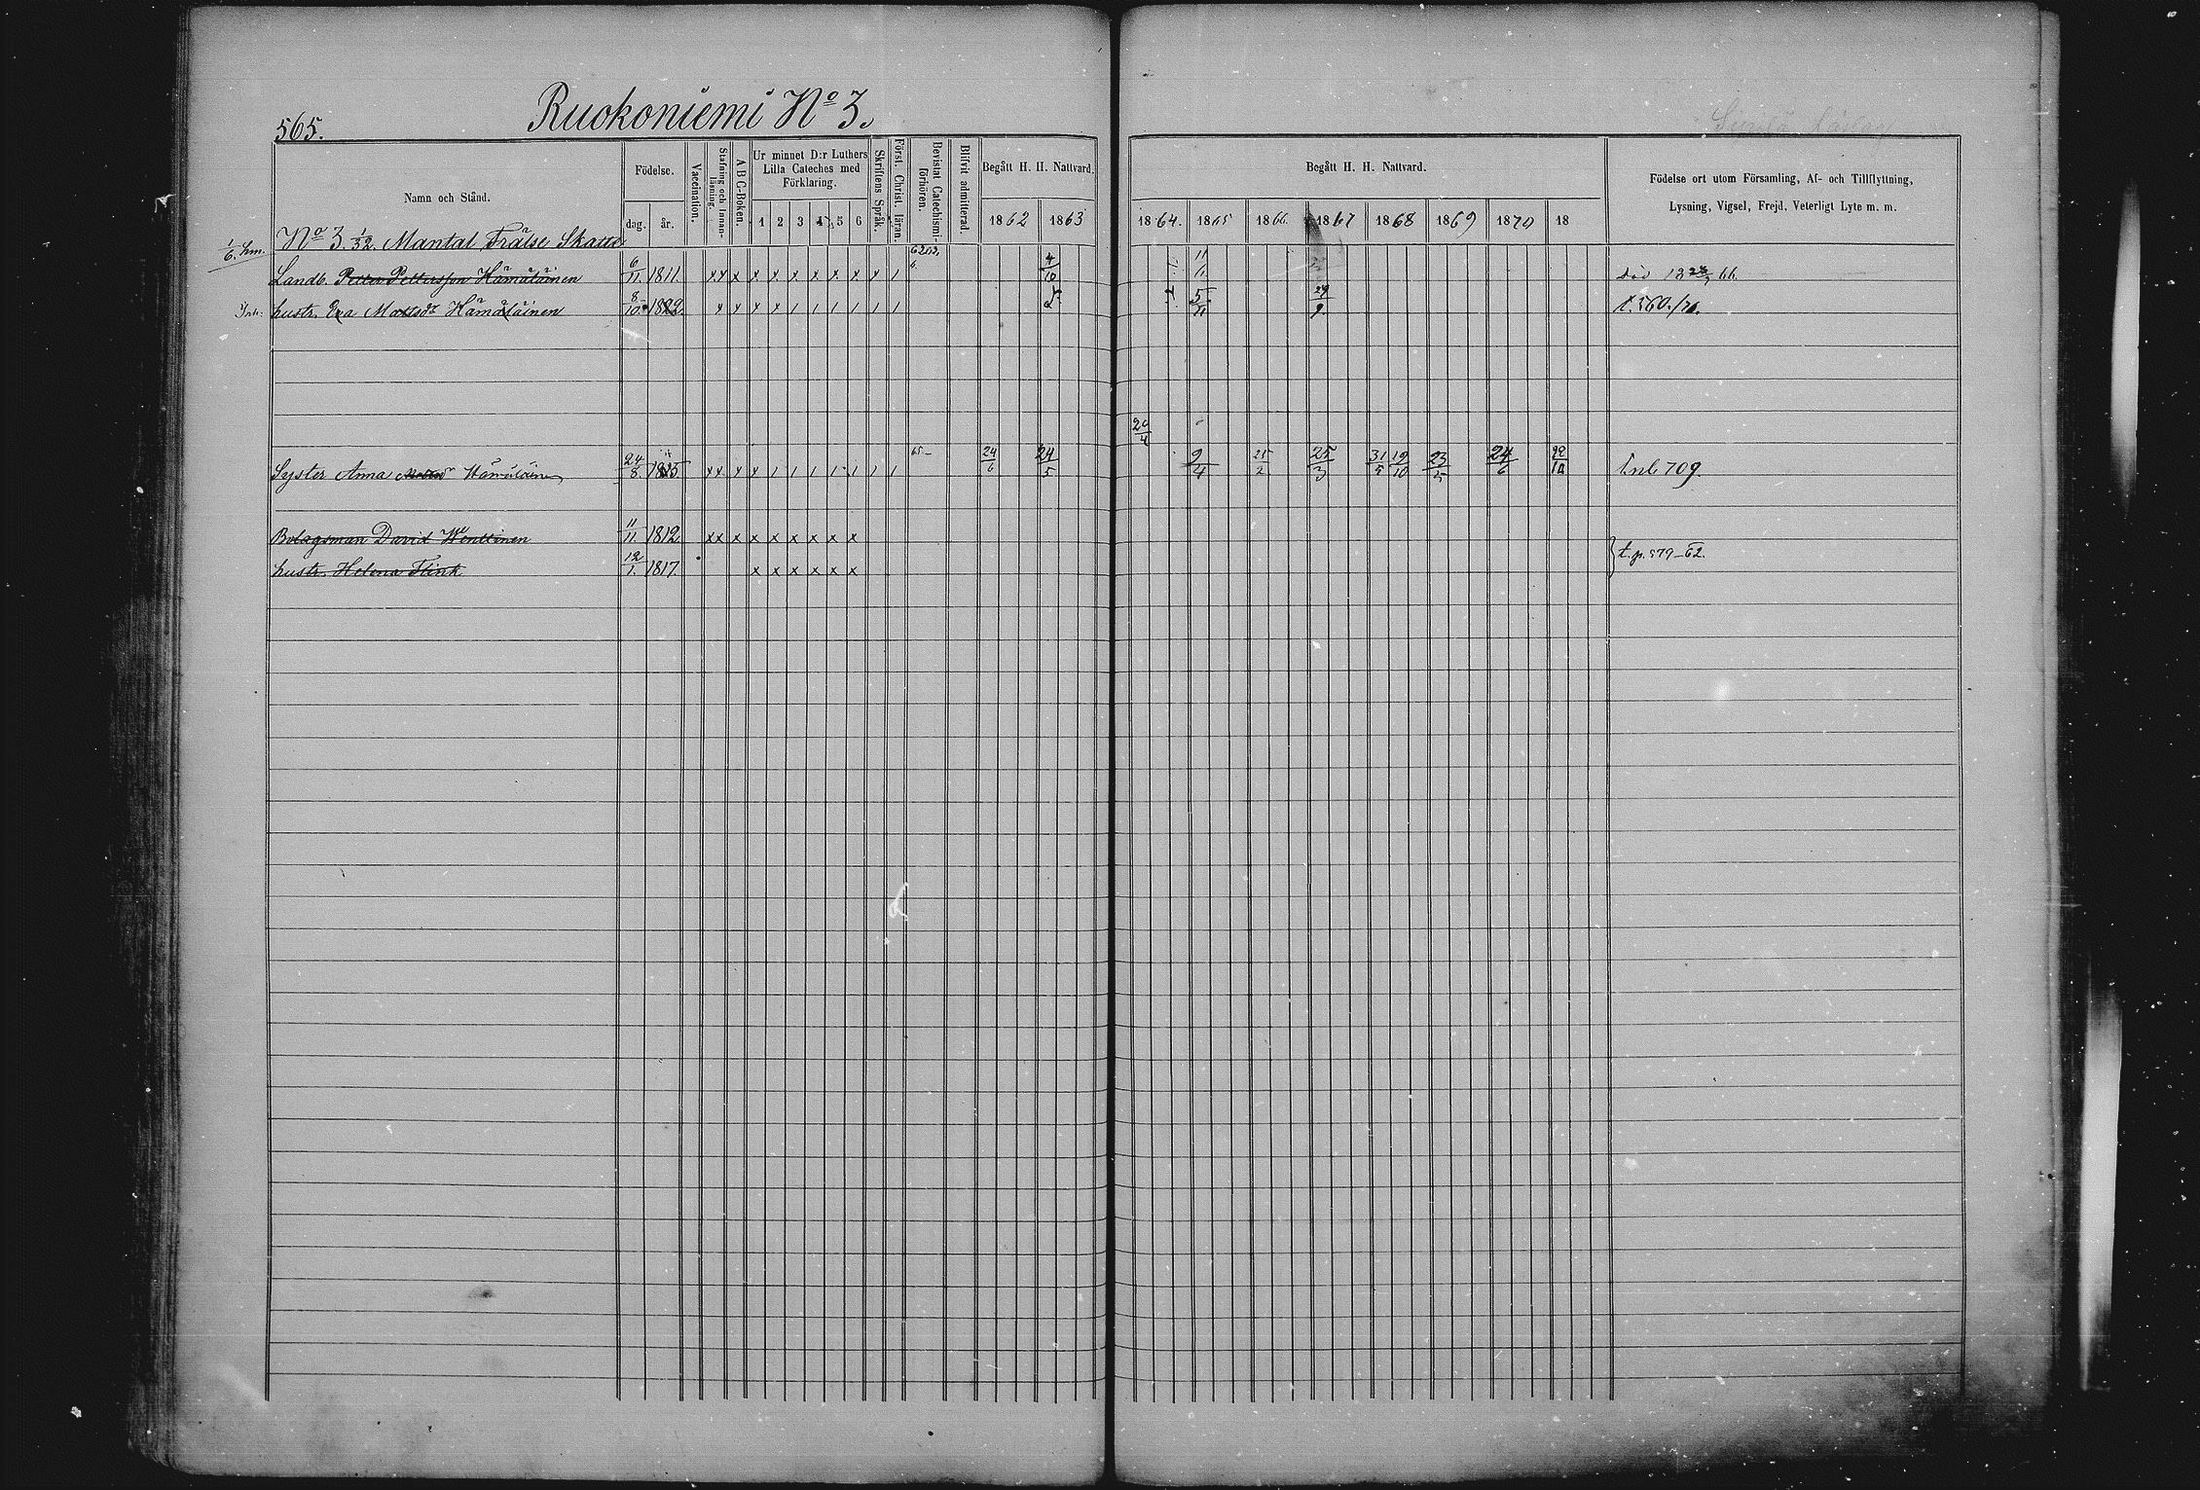 565.
Ruokoniemi No 3.
Namn och Stånd.
Födelse.
dag.
år.
Vaccination.
Stafning och Innanläsning.
A B C-Boken.
Ur minnet D:r Luthers Lilla Cateches med Förklaring.
1 2 3 4 5 6
Skriftens Språk.
Först. Christ. läran.
Bevistat Catechismiförhören.
Blifvit admitterad.
Begått H. H. Nattvard.
1862 1863
Begått H. H. Nattvard.
1864. 1865 1866 1867 1868 1869 1870 18
Födelse ort utom Församling, Af- och Tillflyttning,
Lysning, Vigsel, Frejd, Veterligt Lyte m. m.
No 3 1/32 Mantal Frälse Skatte
1/6. hm.
Landb. Petter Pettersson Hämäläinen 6/11. 1811. x x x x x x x x x x / 4/10 död 18 66.
hustr. Eva Mattsdr Hämäläinen 8/10. x x x x x / / / / / / 5/11 29/9. t. 360./70.
20/4
Syster Anna Hämäläinen 24/8. x x x x x / / / / / / / 65 24/6 24/5 9/4 25/2 25/3 31/5 19/10 23/5 24/6 709.
Bolagsman David Wenttinen 11/11. 1812 x x x x x x x x x
hustr. Helena Flink 12/1. 1817. x x x x x x
t. p. 579-62.